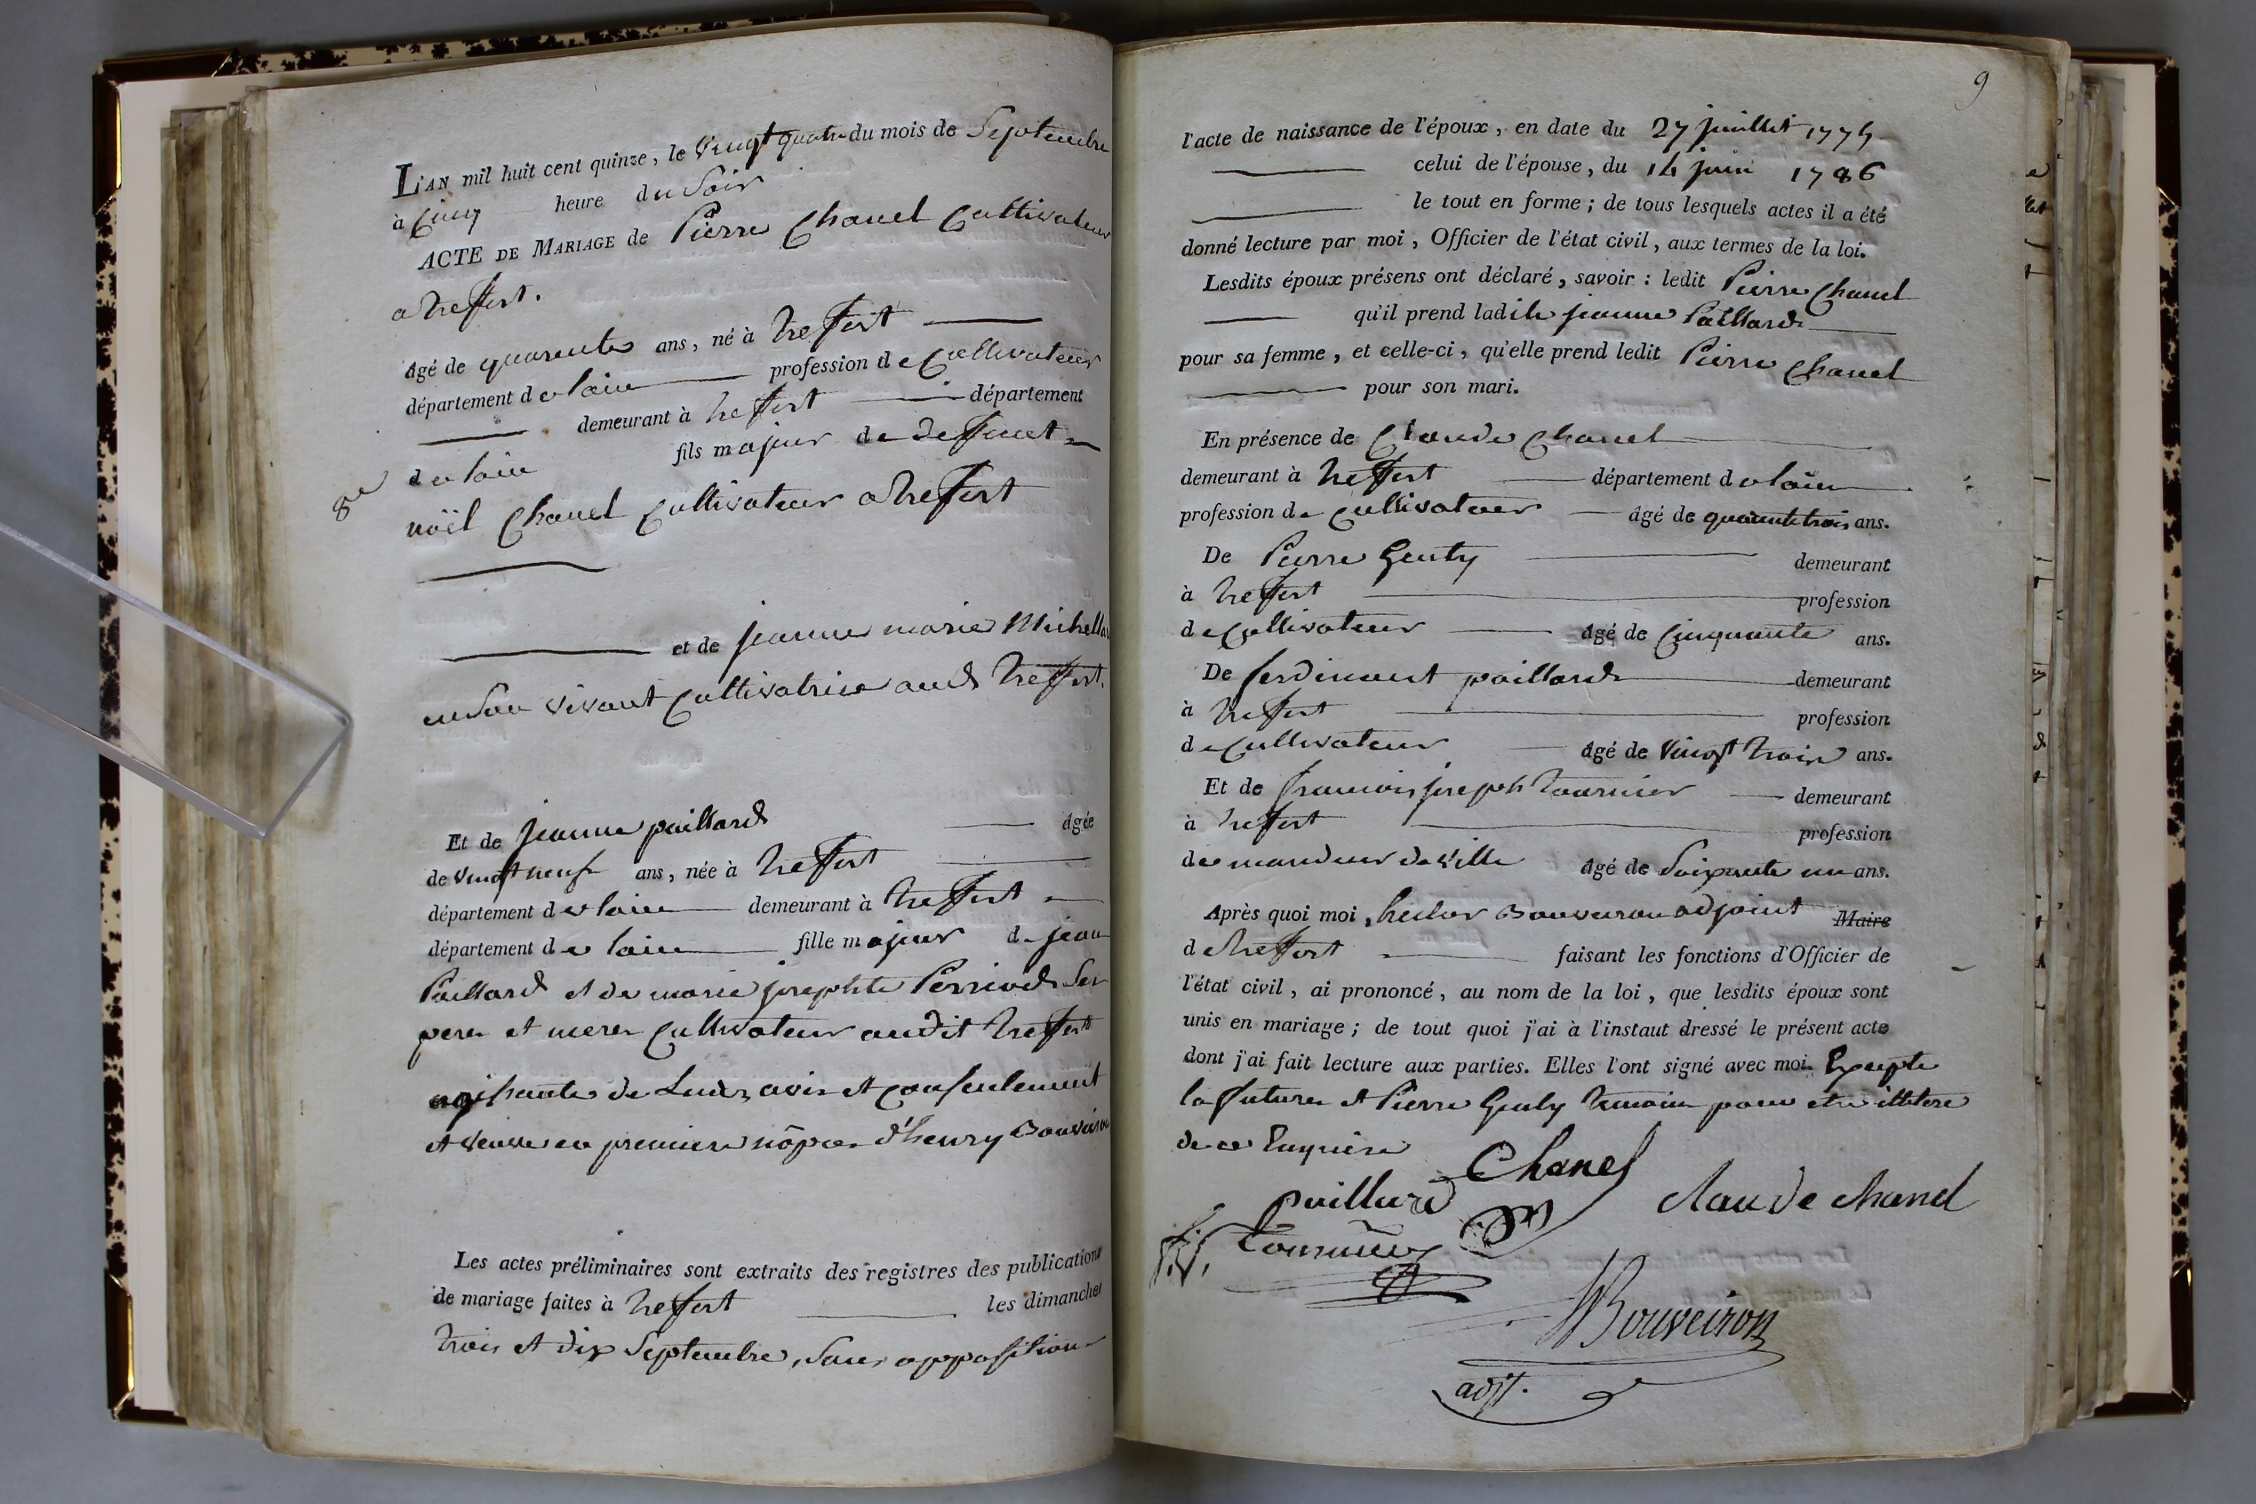 L'AN mil huit cent quinze, le vingt quatre du mois de Septembre
à Cinq heure du Soir
ACTE DE MARIAGE de Pierre Chanel Cultivateur
a treffort.
âgé de quarente ans, né à treffort
département de lain profession de Cultivateur
demeurant à treffort département
de lain fils majeur de deffunt
8e
noël Chanel Cultivateur a treffort
et de jeanne marie Michellar
en son vivant Cultivatrice aud treffort.
Et de jeanne paillard âgée
de vingt neuf ans, née à treffort
département de lain demeurant à treffort
département de lain fille majeur de jean
Paillard et de marie josephte Perriod ses
perer et merer Cultivateur audit treffort
agissante de leurs avis et consentement
et veuve en premiere nôpce d'henry Bouveiron
Les actes préliminaires sont extraits des registres des publications
de mariage faites à treffort les dimanches
trois et dix Septembre, Sans oppossition
9
l'acte de naissance de l'époux, en date du 27 juillet 1775
celui de l'épouse, du 14 juin 1786
le tout en forme; de tous lesquels actes il a été
donné lecture par moi, Officier de l'état civil, aux termes de la loi.
Lesdits époux présens ont déclaré, savoir: ledit Pierre Chanel
qu'il prend ladite jeanne Paillard
pour sa femme, et celle-ci, qu'elle prend ledit Pierre Chanel
pour son mari.
En présence de Claude Chanel
demeurant à treffort département de lain
profession de Cultivateur âgé de quarente trois ans.
De Pierre Genty demeurant
à treffort profession
de Cultivateur âgé de Cinquante ans.
De ferdinant paillard demeurant
à treffort profession
de Cultivateur âgé de vingt trois ans.
Et de francois joseph tournier demeurant
à treffort profession
de mandeur de ville âgé de Soixante un ans.
Après quoi moi, hector Bouveiron adjoint Maire
de treffort faisant les fonctions d'Officier de
l'état civil, ai prononcé, au nom de la loi, que lesdits époux sont
unis en mariage; de tout quoi j'ai à l'instant dressé le présent acte
dont j'ai fait lecture aux parties. Elles l'ont signé avec moi. Excepte
la future et Pierre Genty temoin pour etre illitere
de ce Enquiere
Chanel
paillard Claude chanel
tournier
Bouveiron
adjt.